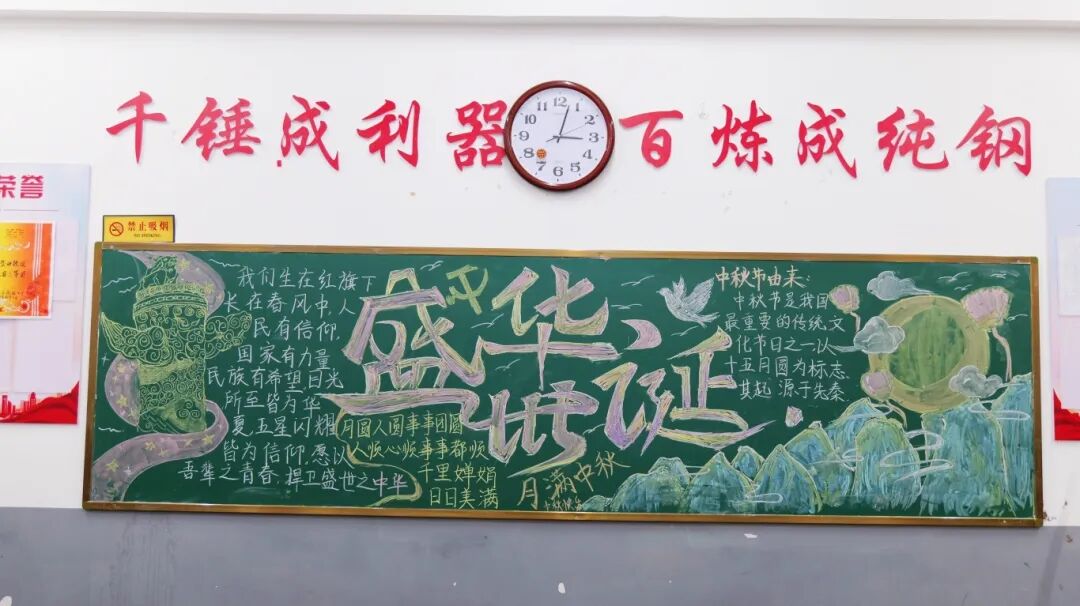 千锤成利器
百炼成纯钢
荣誉
禁止吸烟
NO SMOKING
12
1
2
3
4
5
6
7
8
9
10
11
我们生在红旗下
长在春风中,人
民有信仰,
国家有力量,
民族有希望目光
所至皆为华
夏,五星闪耀
皆为信仰.愿以
吾辈之青春,捍卫盛世之中华
盛世华诞
月圆人圆事事团圆
人顺心顺事事都顺
千里婵娟
日日美满
月满中秋
中秋节由来:
中秋节是我国
最重要的传统文
化节日之一以
十五月圆为标志
其起源于先秦